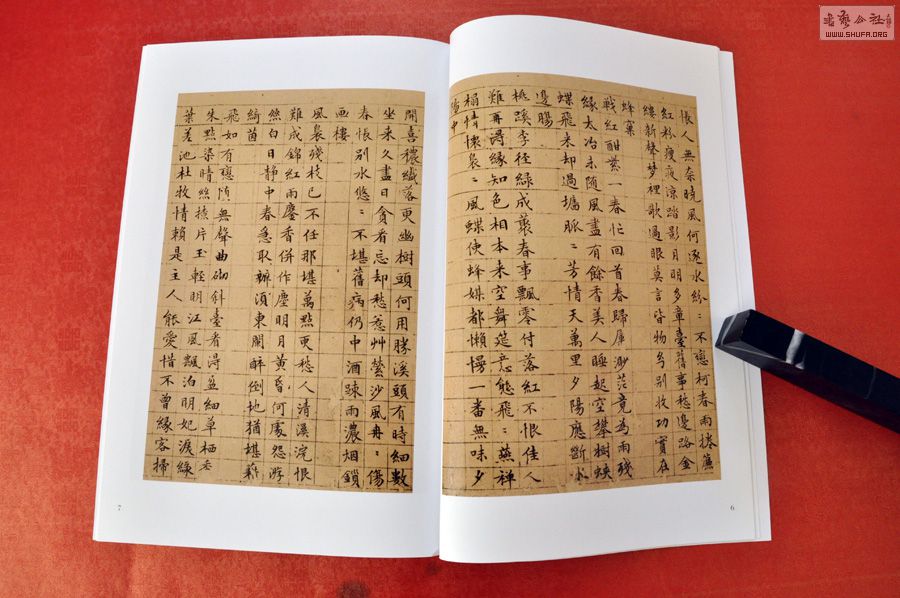 悵人無奈曉風何逐水紛〻不戀柯春雨捲簾
紅粉瘦夜涼踏影月明多章臺舊事愁邊路金
縷新聲夢裡歌過眼莫言皆物幻別收功實在
蜂窠
戰紅酣紫一春忙回首春歸屬渺茫竟為雨殘
緣太冶未随風盡有餘香美人睡起空攀樹蛺
蝶飛来却過墻脈〻芳情天萬里夕陽應斷水
邊腸
桃蹊李徑綠成叢春事飄零付落紅不恨佳人
難再得緣知色相本来空舞筵意態飛〻燕禪
榻情懷裊〻風蝶使蜂媒都懶慢一番無味夕
陽中
6
開喜穠纖落更幽樹頭何用勝溪頭有時細數
坐来久盡日貪看忘却愁惹艸縈沙風冉〻傷
春悵別水悠〻不堪舊病仍中酒踈雨濃烟鎖
画樓
風裊殘枝已不任那堪萬點更愁人清溪浣恨
難成錦紅雨塵香併作塵明月黄昏何處怨游
絲白日靜中春急取辦須東閣醉倒地猶堪藉
綺茵
飛如有戀墮無聲曲砌斜臺看得盈細草栖
朱點染晴絲撩片玉輕明江風飄泊明妃淚綠
葉差池杜牧情賴是主人能愛惜不曾緣客掃
7
書藝公社
WWW.SHUFA.ORG